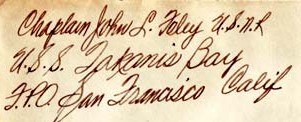 Chaplain John L. Foley U.S.N.R
U.S.S. Takanis Bay
F.P.O. San Francisco Calif